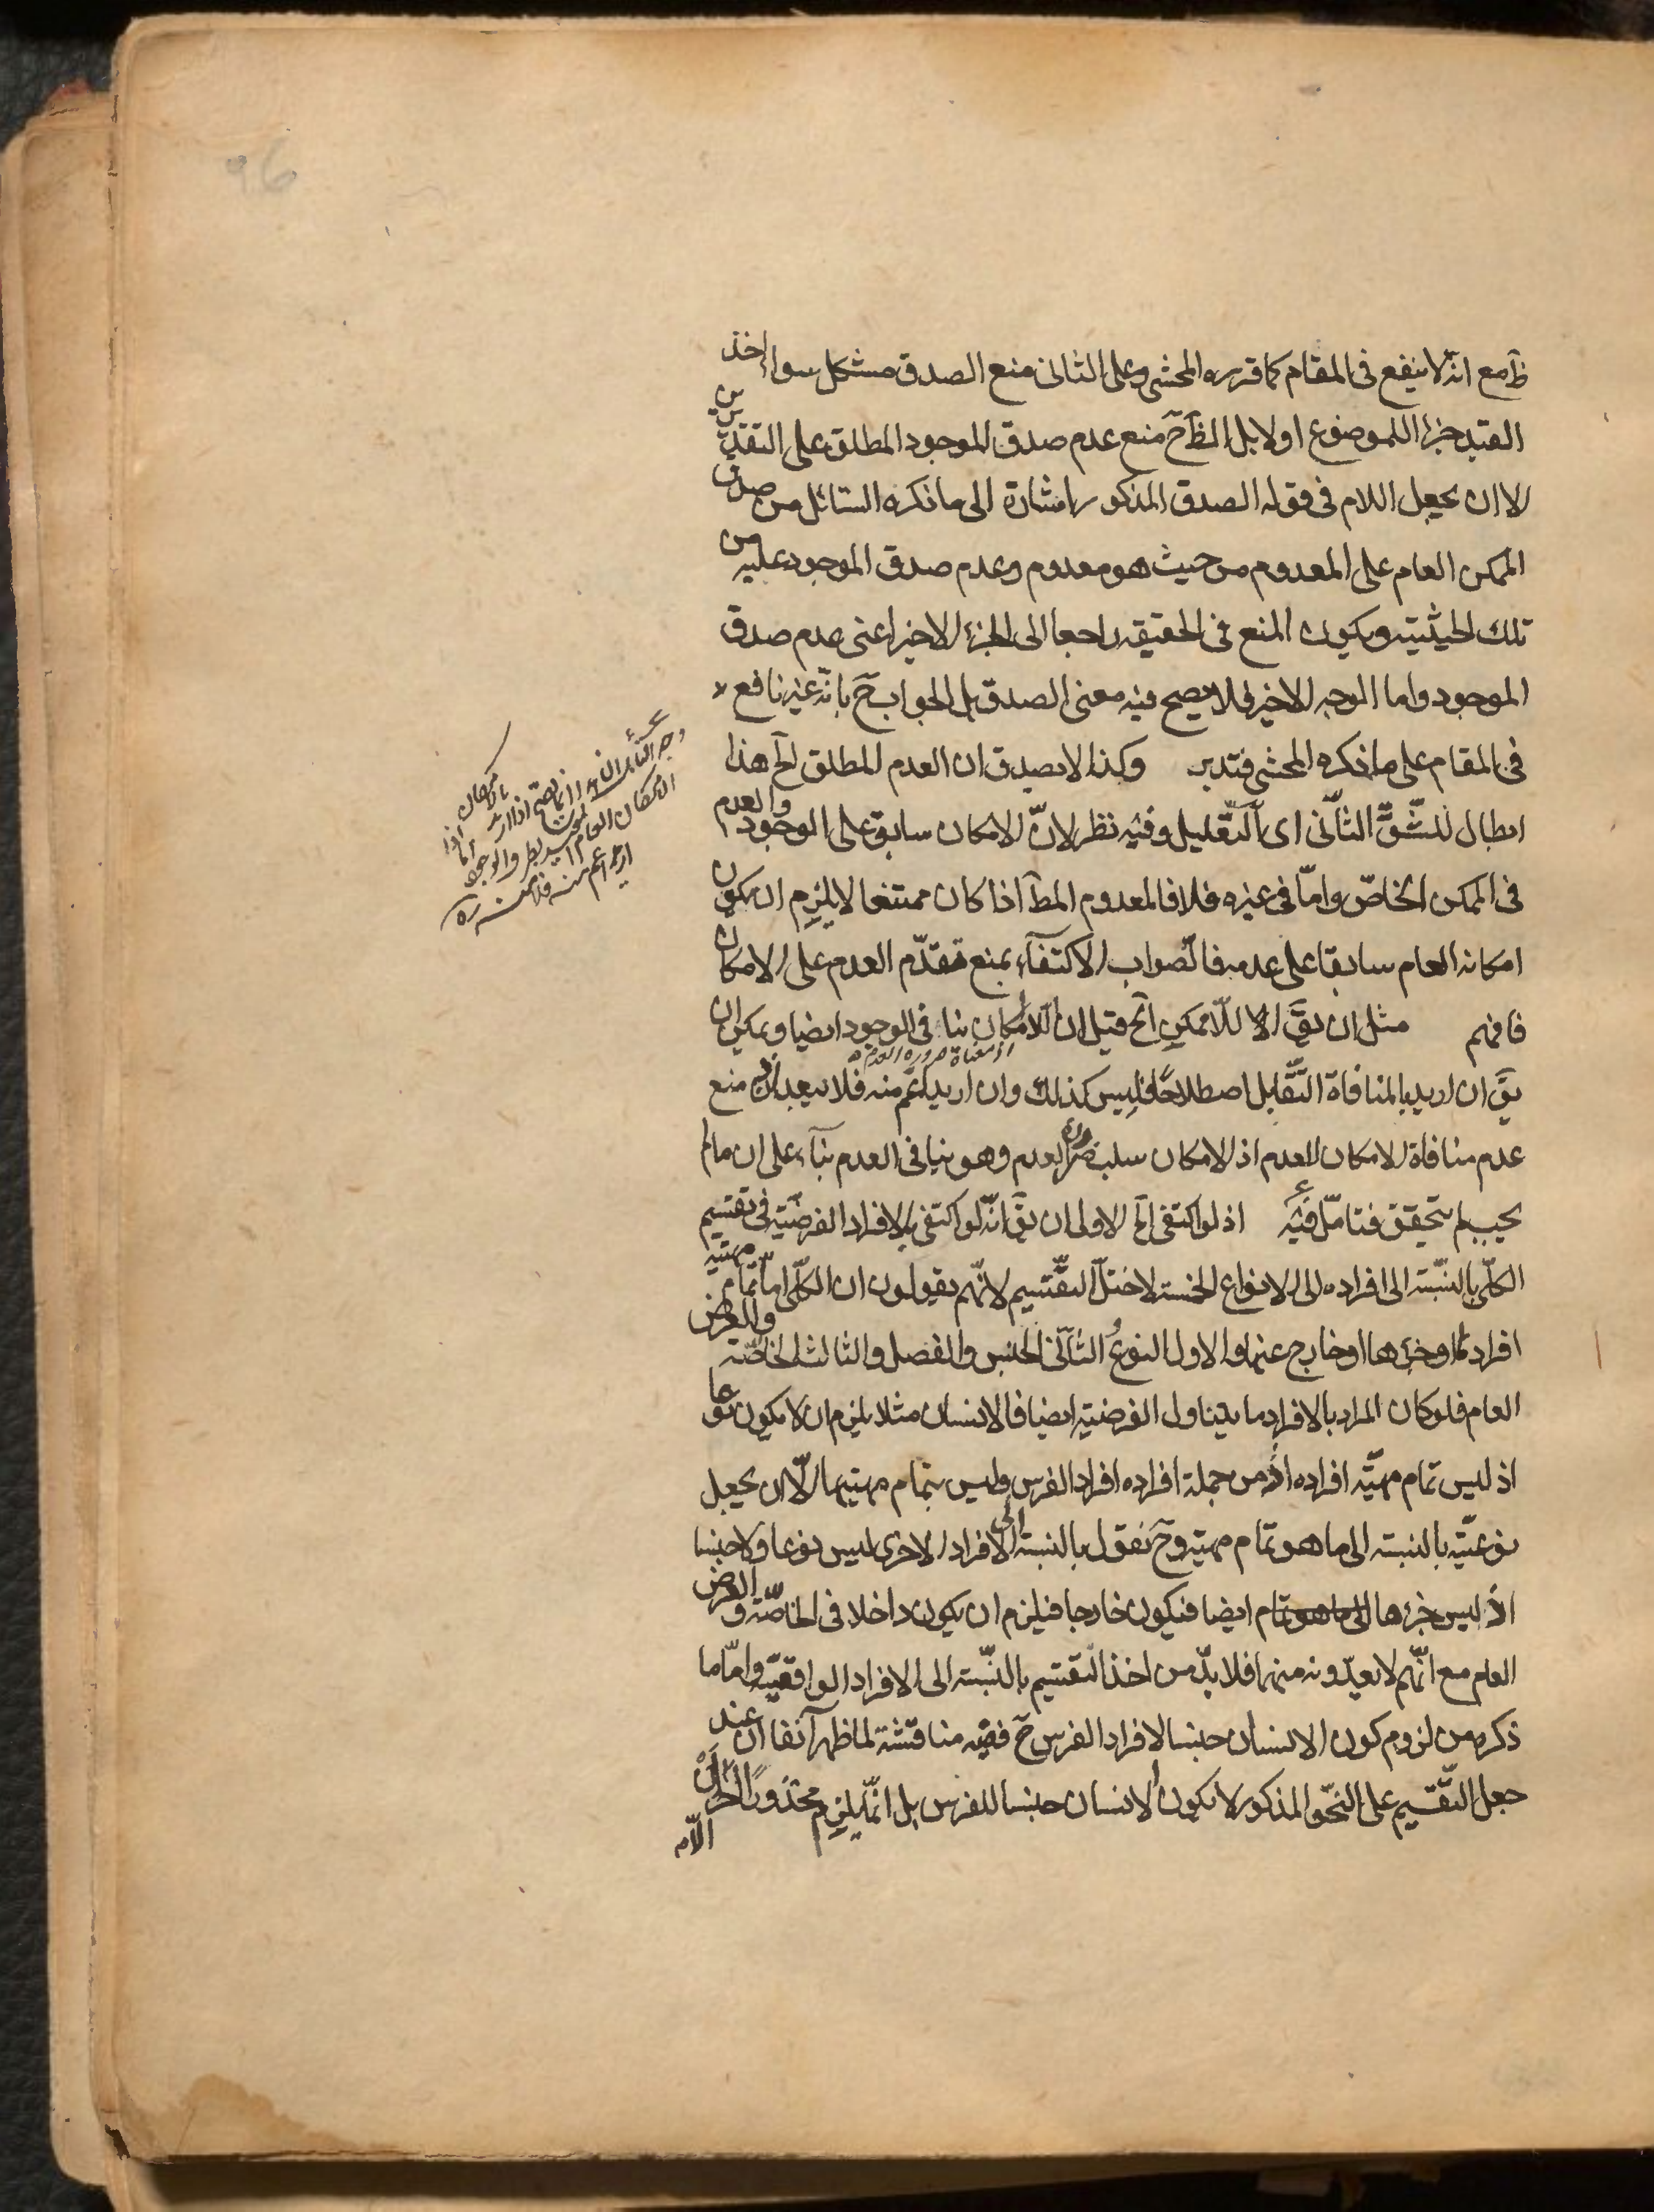 96
ظ مع انه لا ينفع فى المقام كما قرره المحشى وعلى الثانى منع الصدق مشكل سواء اخذ
القيد جزء اللموضوع اولا بل الظ ح منع عدم صدق الموجود المطلق على التقديرين
الا ان يجعل اللام فى قوله الصدق المذكور اشارة الى ما ذكره السائل من صدق
الممكن العام على المعدوم من حيث هو معدوم وعدم صدق الموجود عليه من
تلك الحيثية ويكون المنع فى الحقيقة راجعا الى الجزء الاخير اعنى عدم صدق
الموجود واما الوجه الاخير فلا يصح فيه معنى الصدق بل الجواب ح بانّه غير نافع
فى المقام على ما ذكره المحشى فتدبر وكذا لا يصدق ان العدم المطلق الخ هذا
ابطال للشّقّ الثّانى اى التّعليل وفيه نظر لانّ الامكان سابق على الوجود والعدم
فى الممكن الخاصّ وامّا فى غيره فلا فالمعدوم المط اذا كان ممتنعا لا يلزم ان يكون
امكانه العام سابقا على عدمه فالصواب الاكتفاء بمنع تقدّم العدم على الامكان
فافهم مثل ان يقَ الا للّاممكن الخ قيل ان اللاامكان ينافى الوجود ايضا ويمكن ان
اذ معناه ضرورة العدم
يقَ ان اريد بالمنافاة التّقابل اصطلاحًا فليس كذلك وان اريد اعم منه فلا يبعد ان منع
عدم منافاة الامكان للعدم اذ الامكان سلب ضرورة العدم وهو ينافى العدم بناء على ان ما لم
يجب لم يتحقق فتامّل فيه اذ لو اكتفى الخ الاولى ان يقَ انّه لو اكتفى بالافراد الفرضيّة فى تقسيم
الكلّى بالنسبة الى افراده الى الانواع الخمسة لاختلّ التقسيم لانّهم يقولون ان الكلّى امّا تمام مهيّة
افراده او جزءها او خارج عنها والاول النوعُ والثانى الجنس والفصل والثالث الخاصّة والعرض
العام فلو كان المراد بالافراد ما يتناول الفرضية ايضا فالانسان مثلا يلزم ان لا يكون نوعا
اذ ليس تمام مهيّة افراده اذ من جملة افراده افراد الفرس وليس بتمام مهيتها الّا ان يجعل
نوعيّته بالنسبة الى ما هو تمام مهيته وح نقول بالنسبة الى الافراد الاخرى ليس نوعا ولا جنسا
اذ ليس جزءها الى ما هو تمام ايضا فيكون خارجا فيلزم ان يكون داخلا فى الخاصّة والعرض
العام مع انّهم لا يعدّونه منهما فلا بدّ من اخذ التقسيم بالنسبة الى الافراد الواقعيّة وامّا ما
ذكره من لزوم كون الانسان جنسا لافراد الفرس ح ففيه مناقشة لما ظهر آنفا ان عند
جعل التّقسيم على النّحو المذكور لا يكون الانسان جنسا للفرس بل انّما يلزم محذورًا اخر
اللّهم
وجه التامل ان هذا انما يصح اذا اريد بالامكان
الامكان العام المقيد بطرف الوجود اما اذا
اريد اعم منه فلا منه ره